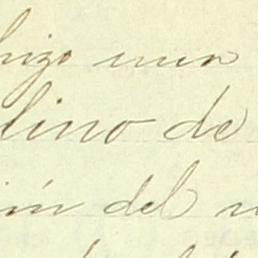 hizo una
lino de
ión del